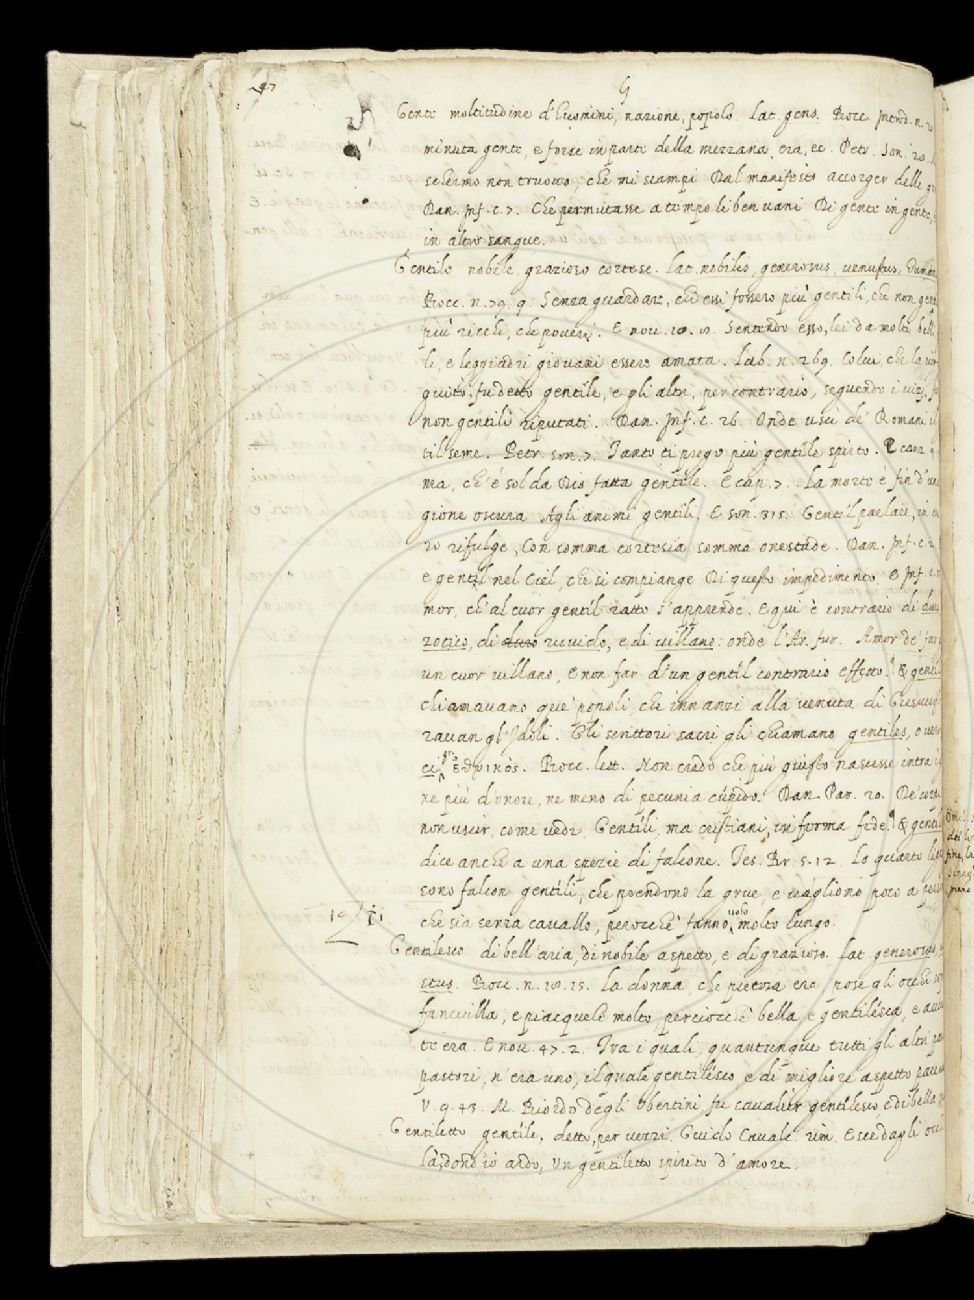 G
Gente moltitudine d'huomini, nazione, popolo. Lat. gens. Bocc. Introd. n. 20
minuta gente, e forse in parte della mezzana era, ec. Petr. son. 28.
schermo non truovo, che mi scampi Dal manifesto accorger delle
Dan. Inf. c. 7. Che permutasse a tempo li ben vani Di gente in gente,
in altro sangue.
Gentile nobile, grazioso cortese. Lat. nobilis, generosus, venustus,
Bocc. n. 79. 9. Senza guardare, chi essi fossero più gentili, che non
più ricchi, che poveri. E nov. 10. Sentendo esso, lei da molti
li, e leggiadri giovani essere amata. Lab. n. 269. Colui, che la
guitò, fu detto gentile, e gli altri, per contrario, seguendo i vizj,
non gentili riputati. Dan. Inf. c. 26. Onde uscì de' Romani il
til seme. Petr. son. 7. Tanto ti prego più gentile spirto. E canz.
ma, ch'è sol da Dio fatta gentile. E cap. 7. La morte è fin d'una
gione oscura Agli animi gentili, E son. 315. Gentil parlare, in
ro rifulge, Con somma cortesia somma onestade. Dan. Inf. c. 2
e gentil nel Ciel, che si compiange Di questo impedimento. E Inf. c.
mor, ch'al cuor gentil ratto s'apprende. E qui è contrario di
zotico, di ruvido, e di villano: onde l'Ar. fur. Amor de' far
un cuor villano, E non far d'un gentil contrario effetto. & gentil
chiamavano que' popoli, che innanzi alla venuta di
ravan gl'Idoli. Gli scrittori sacri gli chiamano gentiles, o
ci gr. ἐθνικός. Bocc. lett. Non credo che più giusto nascesse intra
ne più d'onore, ne meno di pecunia cupido. Dan. Par. 20. De' corpi
non uscir, come vedi, Gentili, ma cristiani, in ferma fede. & gentil
dice anche a una spezie di falcone. Tes. Br. 5. 12. Lo quarto
sono falcon gentili, che prendono la grue, e vagliono poco a
che sia senza cavallo, perocchè fanno volo molto lungo.
Gentilesco di bell'aria, di nobile aspetto, e di grazioso. Lat. generosus,
stus. Bocc. n. 18. 15. La donna, che pietosa era pose gli occhi
fanciulla, e piacquele molto, perciocchè bella, e gentilesca, e
te era. E nov. 47. 2. Tra i quali, quantunque tutti gli altri
pastori, n'era uno, il quale gentilesco, e di migliore aspetto
V. 9. 43. M. degli Ubertini fu cavalier gentilesco, e di bella
Gentiletto gentile, detto, per vezzi. Guido Cavalc. rim. Esce dagli
là, dond'io ardo, Un gentiletto spirito d'amore.